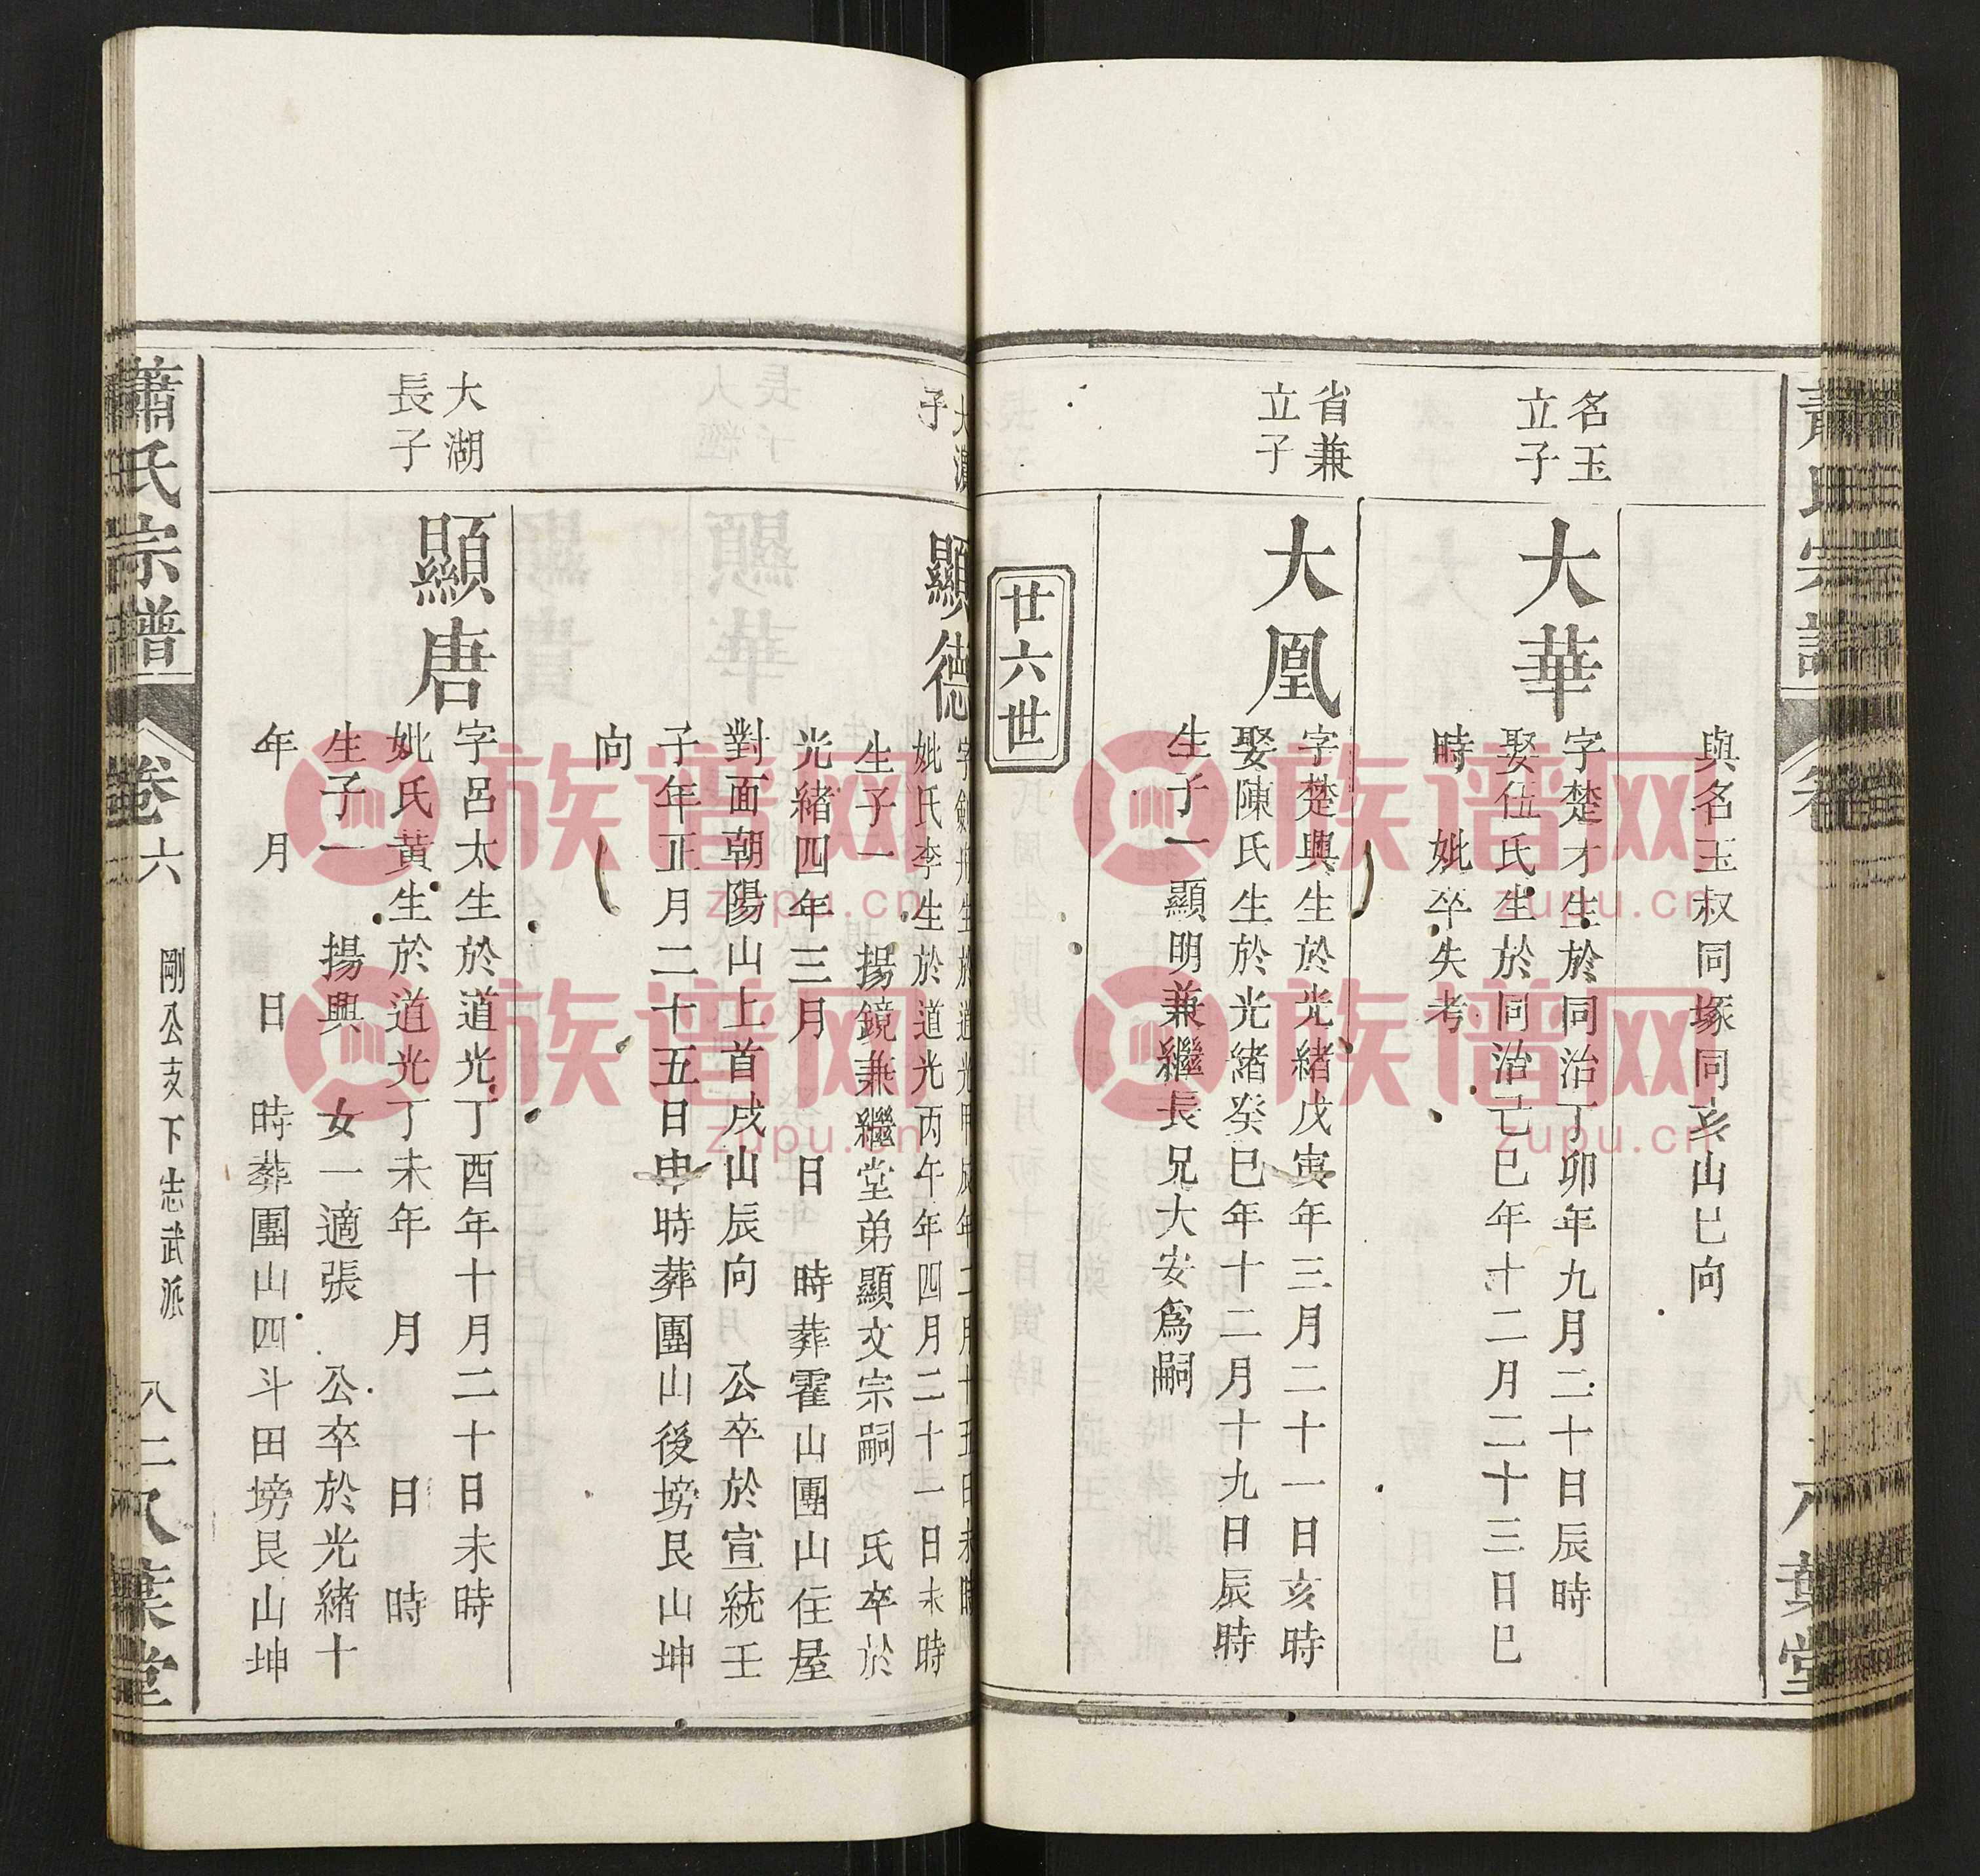 與名玉叔同塚同亥山巳向
名玉
立子
大華
字楚才生於同治丁卯年九月二十日辰時
娶伍氏生於同治己巳年十二月二十三日巳
時 妣卒失考
省兼
立子
大凰
字楚與生於光緒戊寅年三月二十一日亥時
娶陳氏生於光緒癸巳年十二月十九日辰時
生子一顯明兼繼長兄大安爲嗣
廿六世
子
顯德
妣氏李生於道光丙午年四月二十一日未時
生子一 揚鏡兼繼堂弟顯文宗嗣 氏卒於
光緒四年三月 日 時葬霍山團山住屋
對面朝陽山上首戌山辰向 公卒於宣統壬
子年正月二十五日申時葬團山後塝艮山坤
向
大湖
長子
顯唐
字呂太生於道光丁酉年十月二十日未時
妣氏黃生於道光丁未年 月 日 時
生子一 揚興 女一適張 公卒於光緒十
年 月 日 時葬團山四斗田塝艮山坤
蕭氏宗譜
卷六
剛公支下志武派
八二
八葉堂
族谱网
zupu.cn
族谱网
zupu.cn
族谱网
zupu.cn
族谱网
zupu.cn